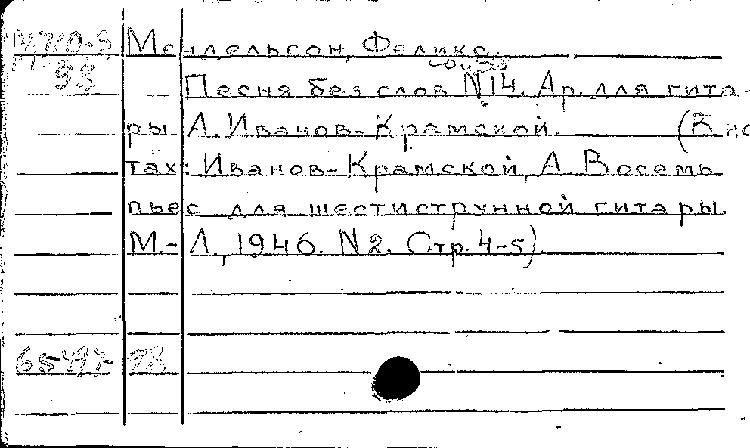 Мендельсон, Феликс.
Песня без слов N14. Ар. для гита-
ры А. Иванов-Крамской. (В но
тах: Иванов-Крамской, А. Восемь
пьес для шестиструнной гитары.
М.-Л., 1946. N2. Стр. 4-5)